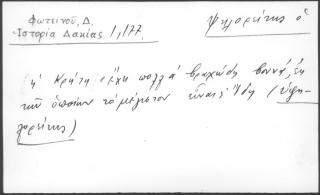 Φωτεινοῦ, Δ.
Ἱστορία Δακίας 1, 177.
Ψηλορείτης ὁ
ἡ Κρήτη ἔχει πολλά βραχώδη βουνά, ἐκ
τῶν ὁποίων τό μέγιστον εἶναι ἡ Ἴδη (Ὑψη-
λορείτης)